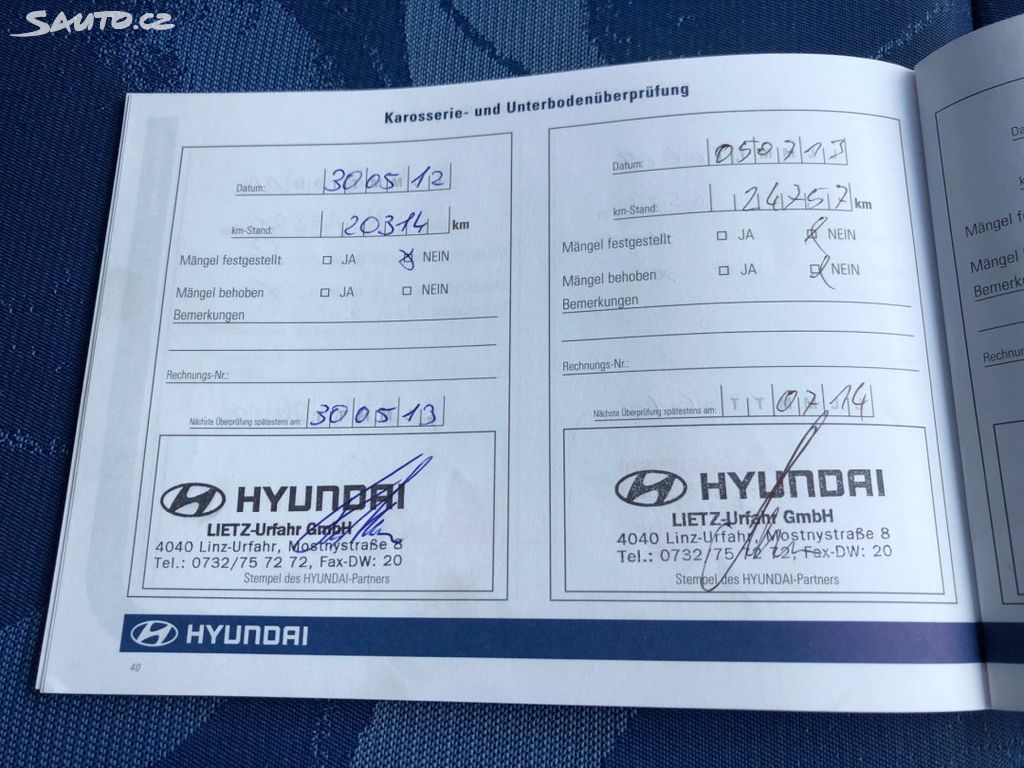 SAUTO.CZ
Karosserie- und Unterbodenüberprüfung
Datum: 300512
km-Stand: 20314 km
Mängel festgestellt JA NEIN
Mängel behoben JA NEIN
Bemerkungen
Rechnungs-Nr.:
Nächste Überprüfung spätestens am: 300513
HYUNDAI
LIETZ-Urfahr GmbH
4040 Linz-Urfahr, Mostnystraße 8
Tel.: 0732/75 72 72, Fax-DW: 20
Stempel des HYUNDAI-Partners
Datum: 050713
km-Stand: 24757 km
Mängel festgestellt JA NEIN
Mängel behoben JA NEIN
Bemerkungen
Rechnungs-Nr.:
Nächste Überprüfung spätestens am: T T 0714
HYUNDAI
LIETZ-Urfahr GmbH
4040 Linz-Urfahr, Mostnystraße 8
Tel.: 0732/75 72 72, Fax-DW: 20
Stempel des HYUNDAI-Partners
HYUNDAI
40
Mängel
Mängel
Bemerku
Rechnun